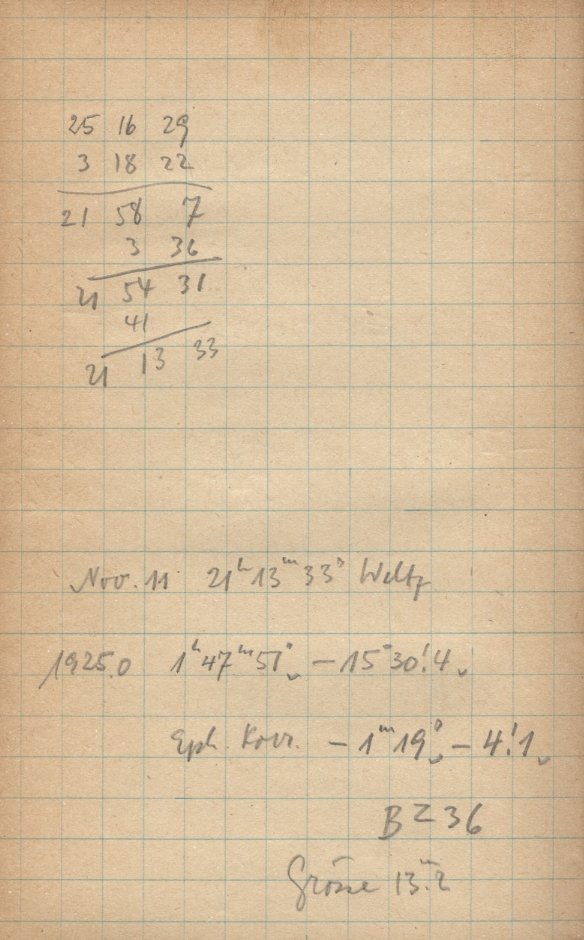 25 16 29
3 18 22
21 58 7
3 36
21 54 31
41
21 13 33
Nov. 11 21ʰ13ᵐ33ˢ Weltz
1925.0 1ʰ47ᵐ51ˢ, −15°30!4,
Eph. Korr. −1ᵐ19ˢ, −4!1,
B Z 36
Grösse 13ᵐ.2